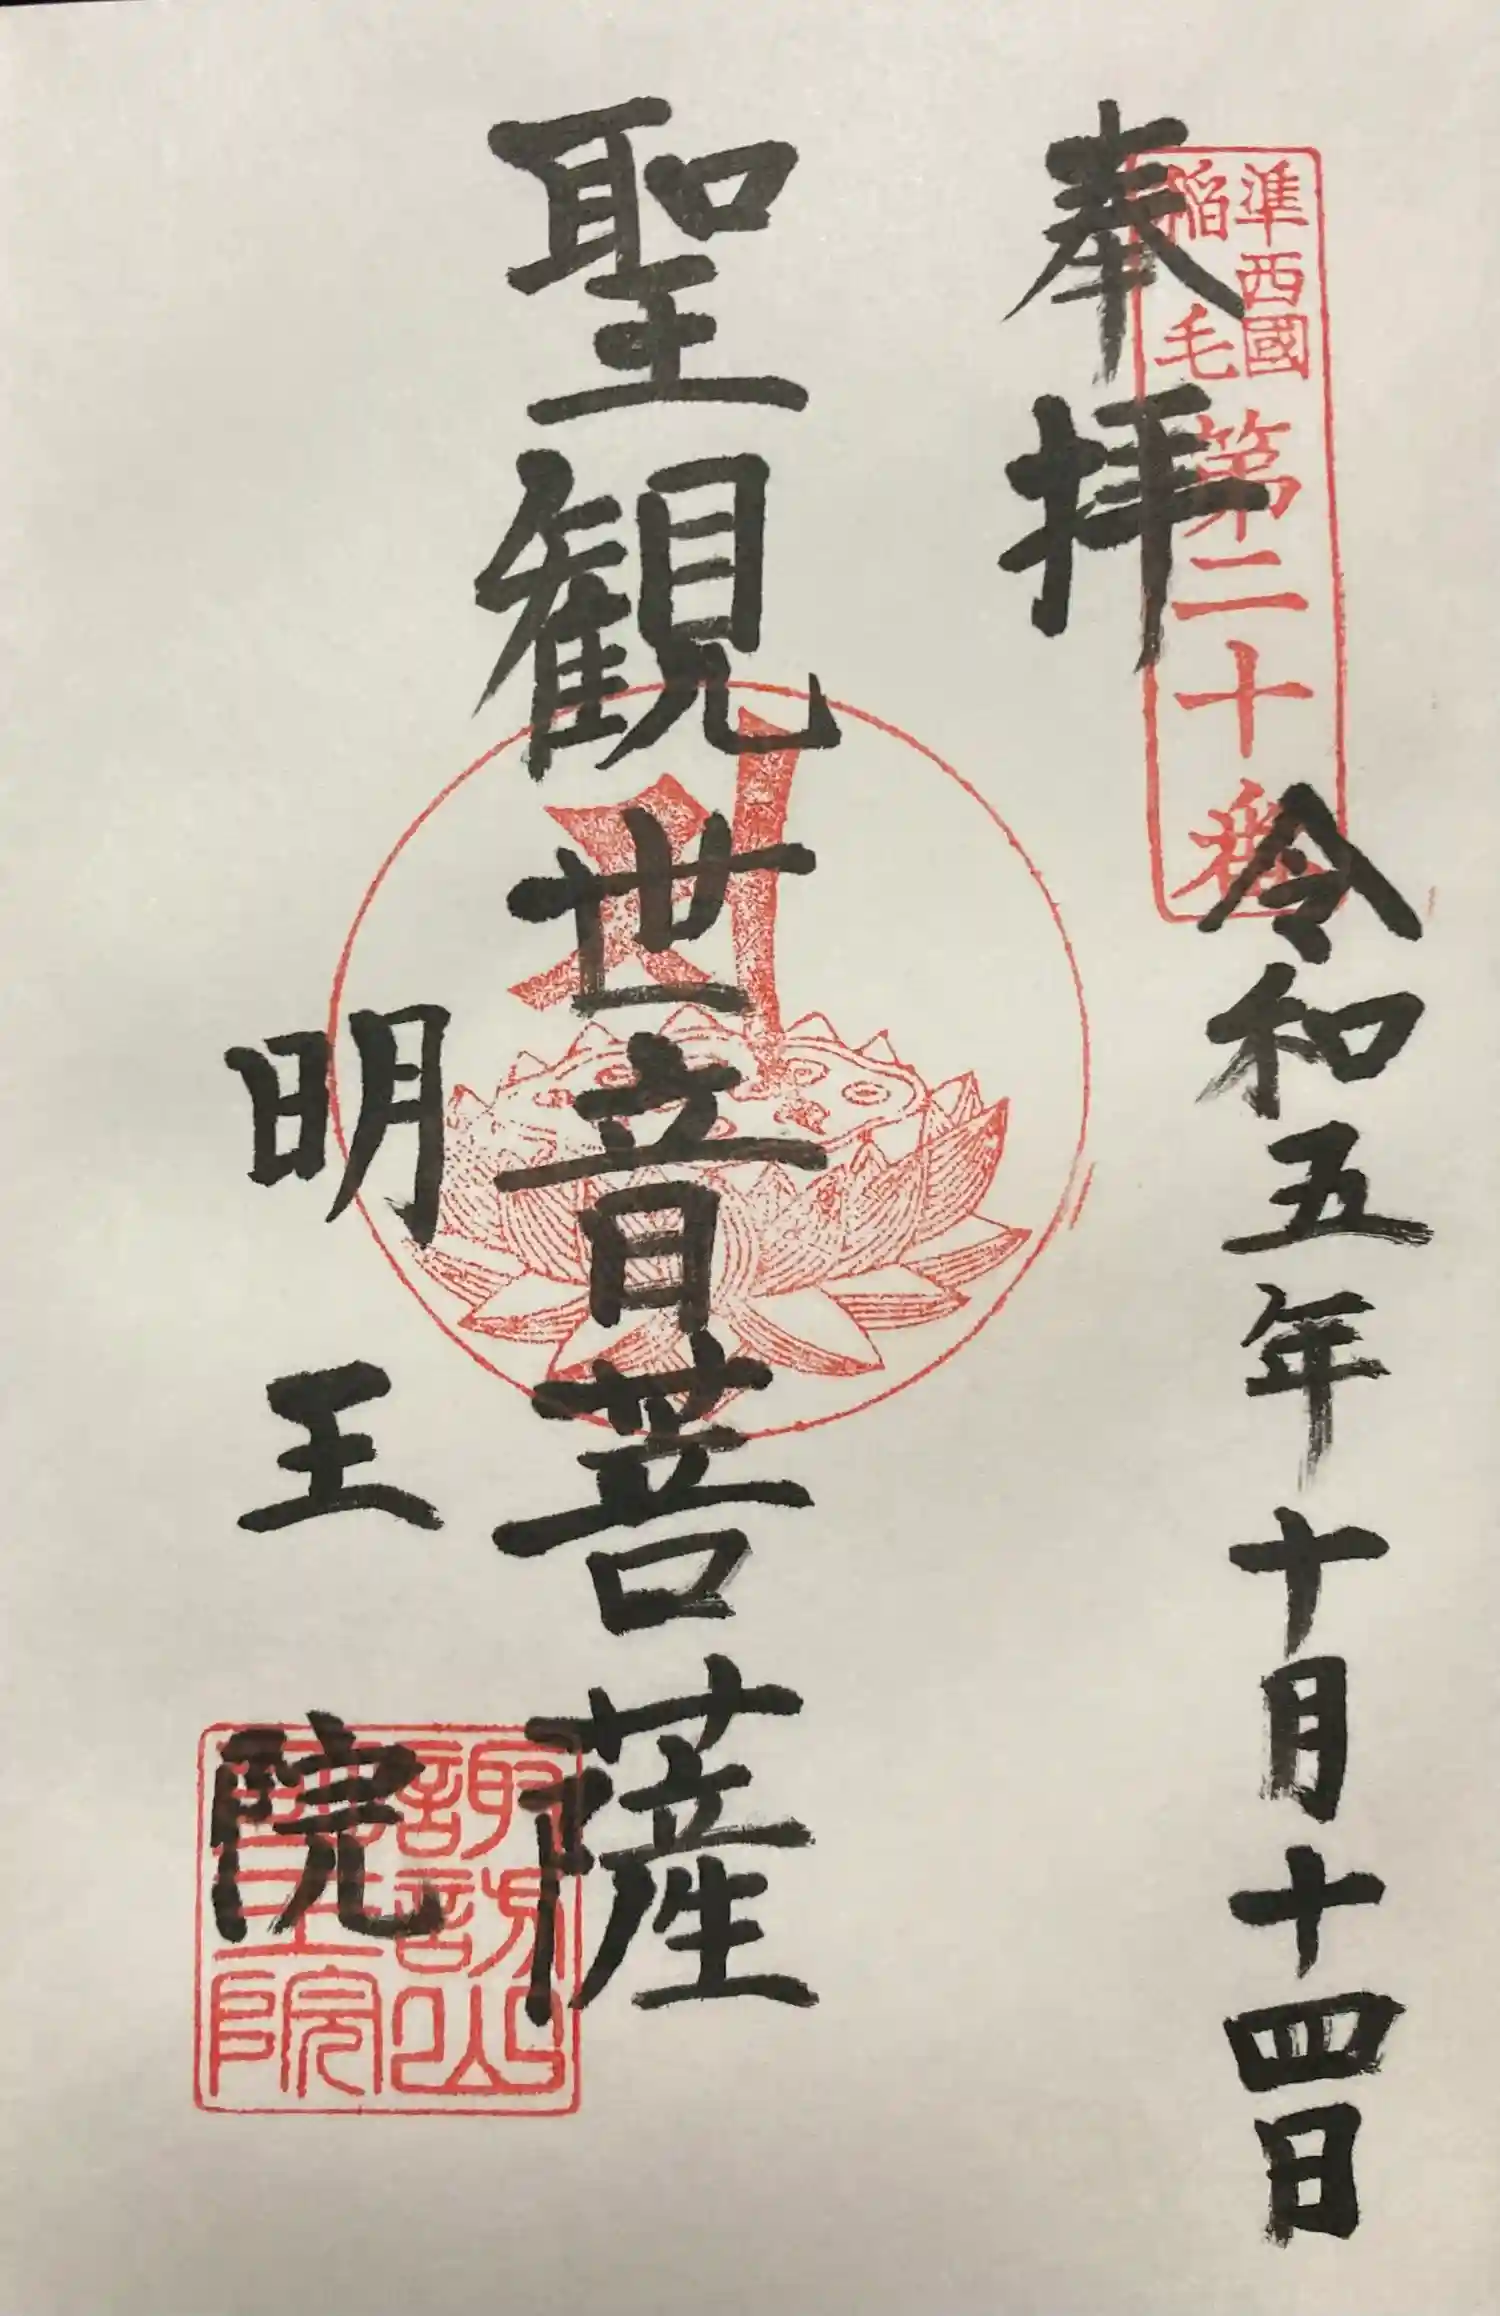 準西國
稲毛
第二十番
奉拝
令和五年十月十四日
聖観世音菩薩
明王院
諏訪山
明王院